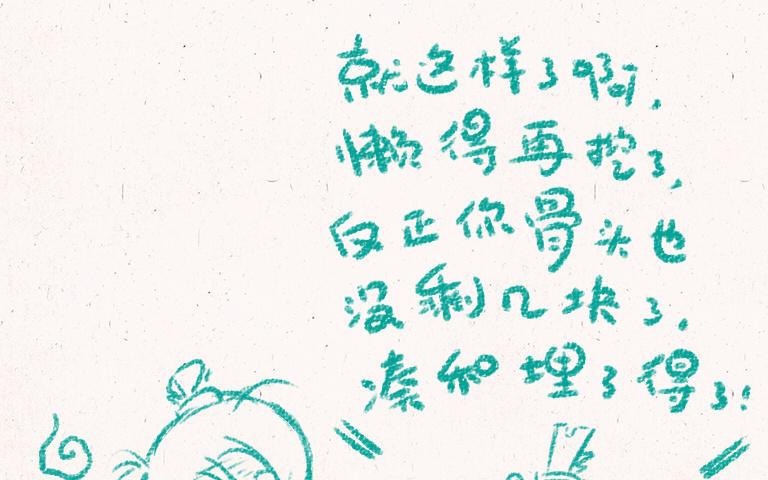 就这样了啊,
懒得再挖了,
反正你骨头也
没剩几块了,
凑和埋了得了!